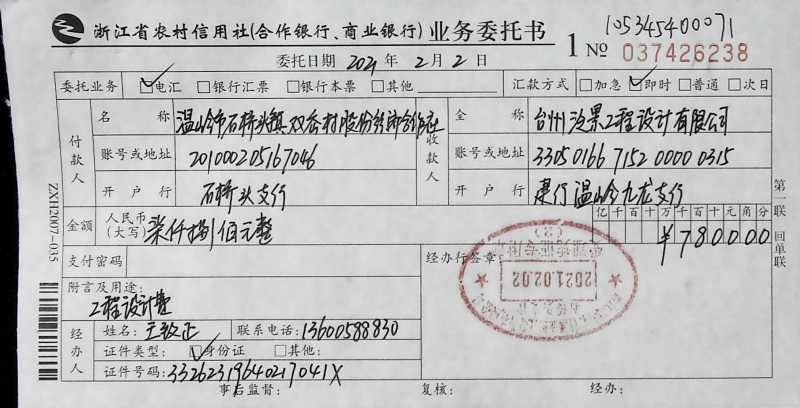 浙江省农村信用社(合作银行、商业银行)业务委托书
105345400071
1 № 037426238
委托日期 2021 年 2 月 2 日
委托业务 ☑电汇 □银行汇票 □银行本票 □其他 汇款方式 □加急 ☑即时 □普通 □次日
付款人 名称 温岭市石桥头镇双岙村股份经济合作社
收款人 全称 台州汶景工程设计有限公司
账号或地址 201000205167046
账号或地址 33050166715200000315
开户行 石桥头支行
开户行 建行温岭九龙支行
金额 人民币(大写) 柒仟捌佰元整
亿千百十万千百十元角分
¥780000
支付密码
经办行签章:
2021.02.02
(2)
附言及用途:
工程设计费
经办人 姓名: 王政正 联系电话: 13600588830
证件类型: ☑身份证 □其他:
证件号码: 33262319640217041X
事后监督: 复核: 经办:
第一联 回单联
ZXH2007-035